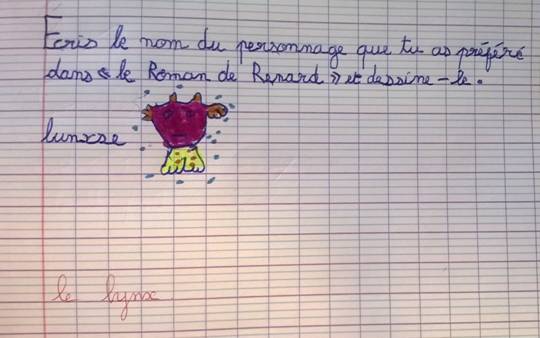 Ecris le nom du personnage que tu as préféré
dans « le Roman de Renard » et dessine-le.
lunxse
le lynx